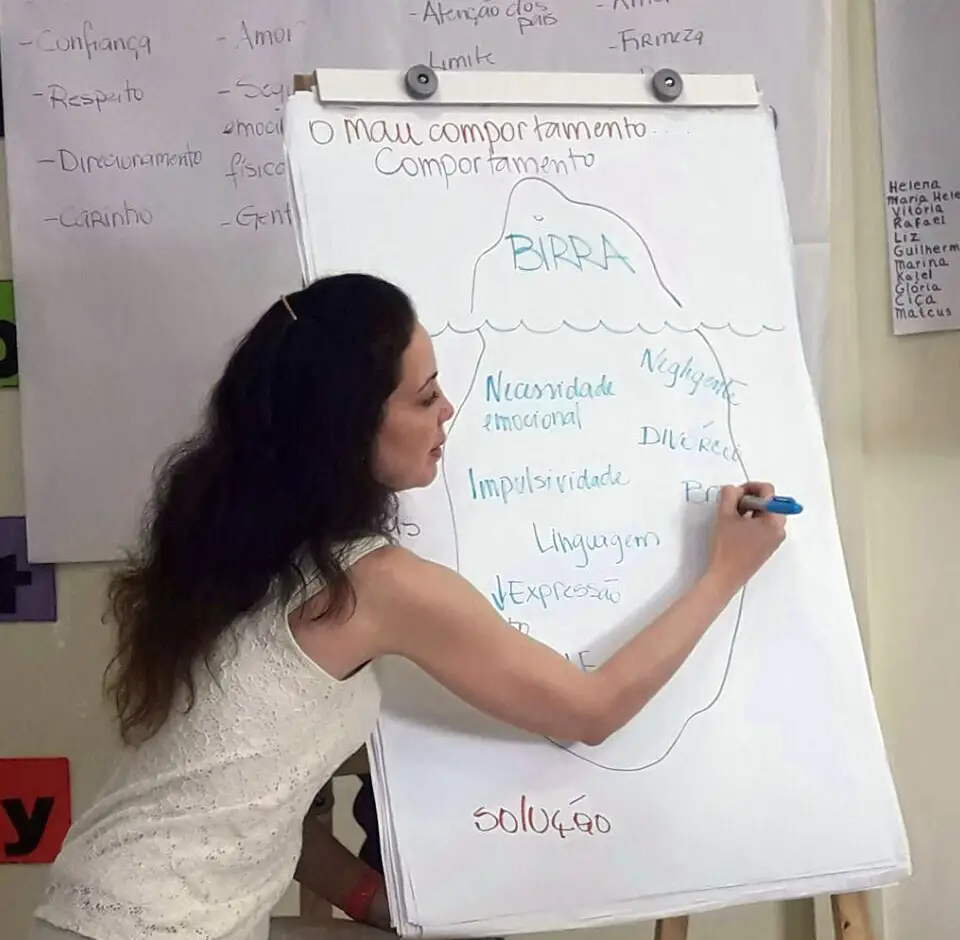 -Confiança
-Respeito
-Direcionamento
-Carinho
- Amor
física
-Atenção dos
pais
Limite
-Firmeza
O mau comportamento....
Comportamento
BIRRA
Necessidade
emocional
Impulsividade
Linguagem
↓Expressão
Negligente
SOLUÇÃO
Helena
Maria
Vitória
Rafael
Liz
Guilherm
Marina
Kalel
Glória
Ciça
Mateus
y